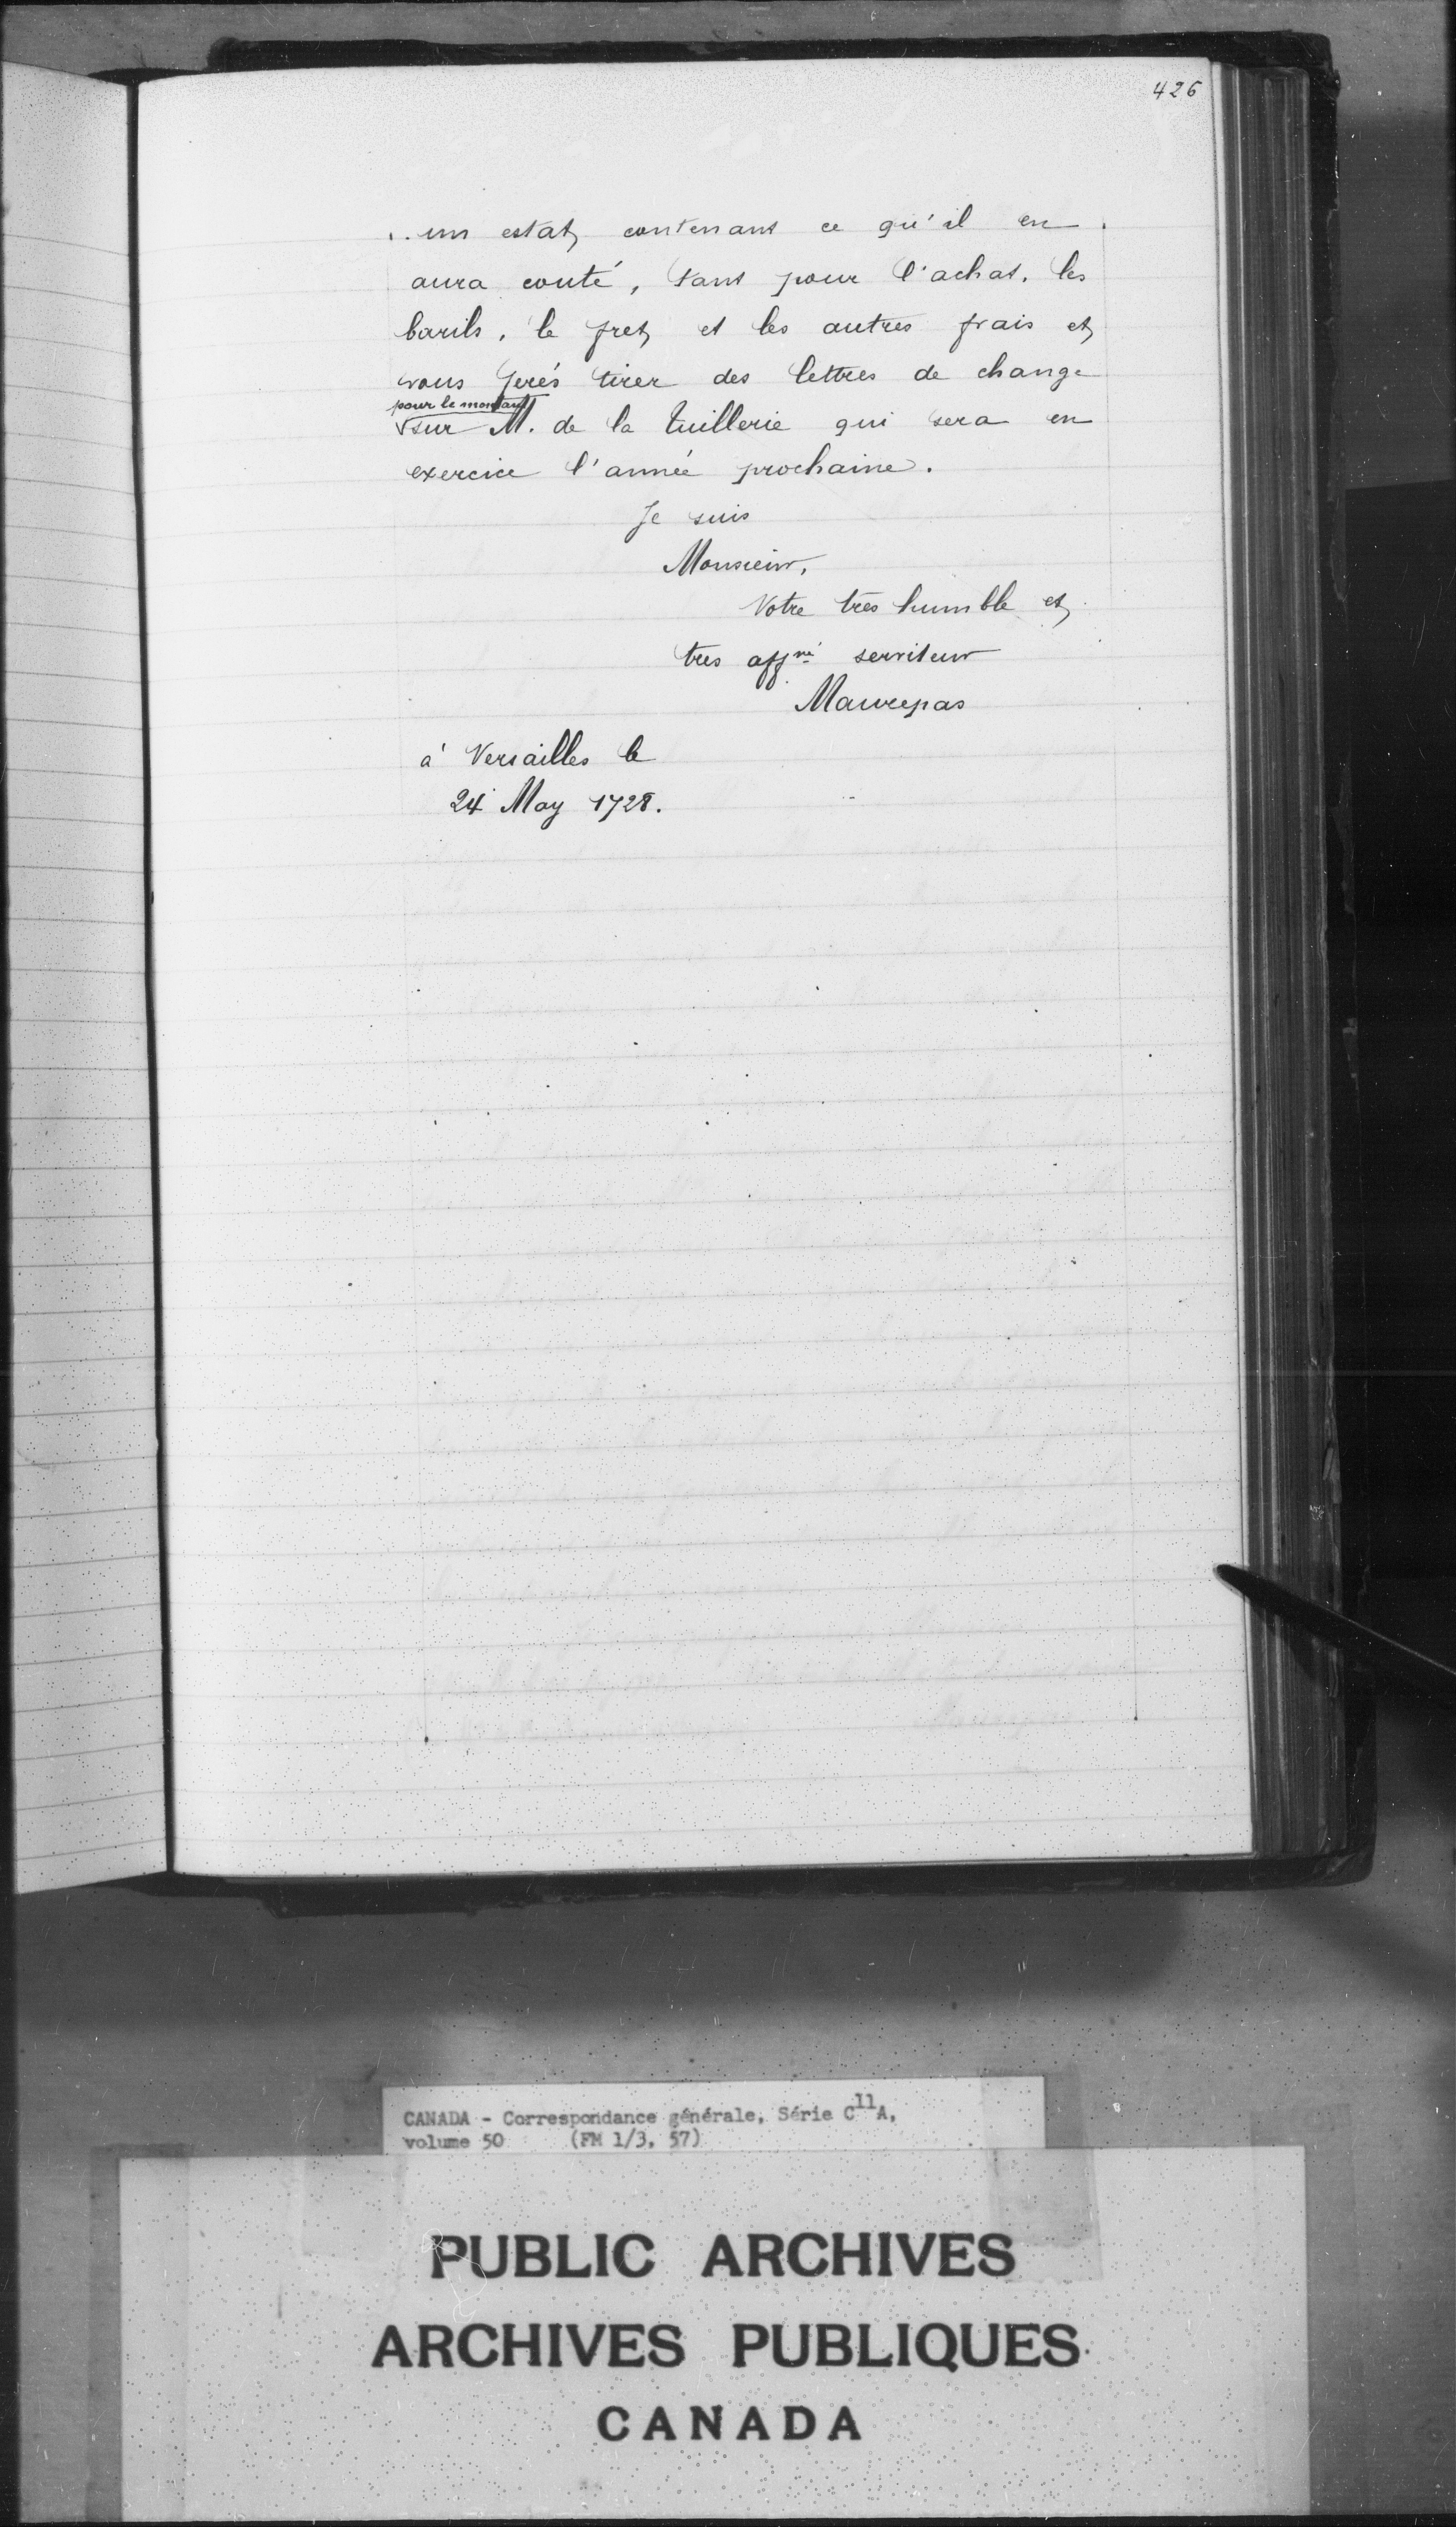 426
un estat contenant ce qu'il en
aura couté, tant pour l'achat, les
barils, le fret et les autres frais et
vous ferés tirer des lettres de change
pour le montant
sur M. de la Tuillerie qui sera en
exercice l'année prochaine.
Je suis
Monsieur,
Votre très humble et
tres affné serviteur
Maurepas
à Versailles le
24 May 1728.
CANADA - Correspondance générale, Série C11A,
volume 50 (FM 1/3, 57)
PUBLIC ARCHIVES
ARCHIVES PUBLIQUES
CANADA